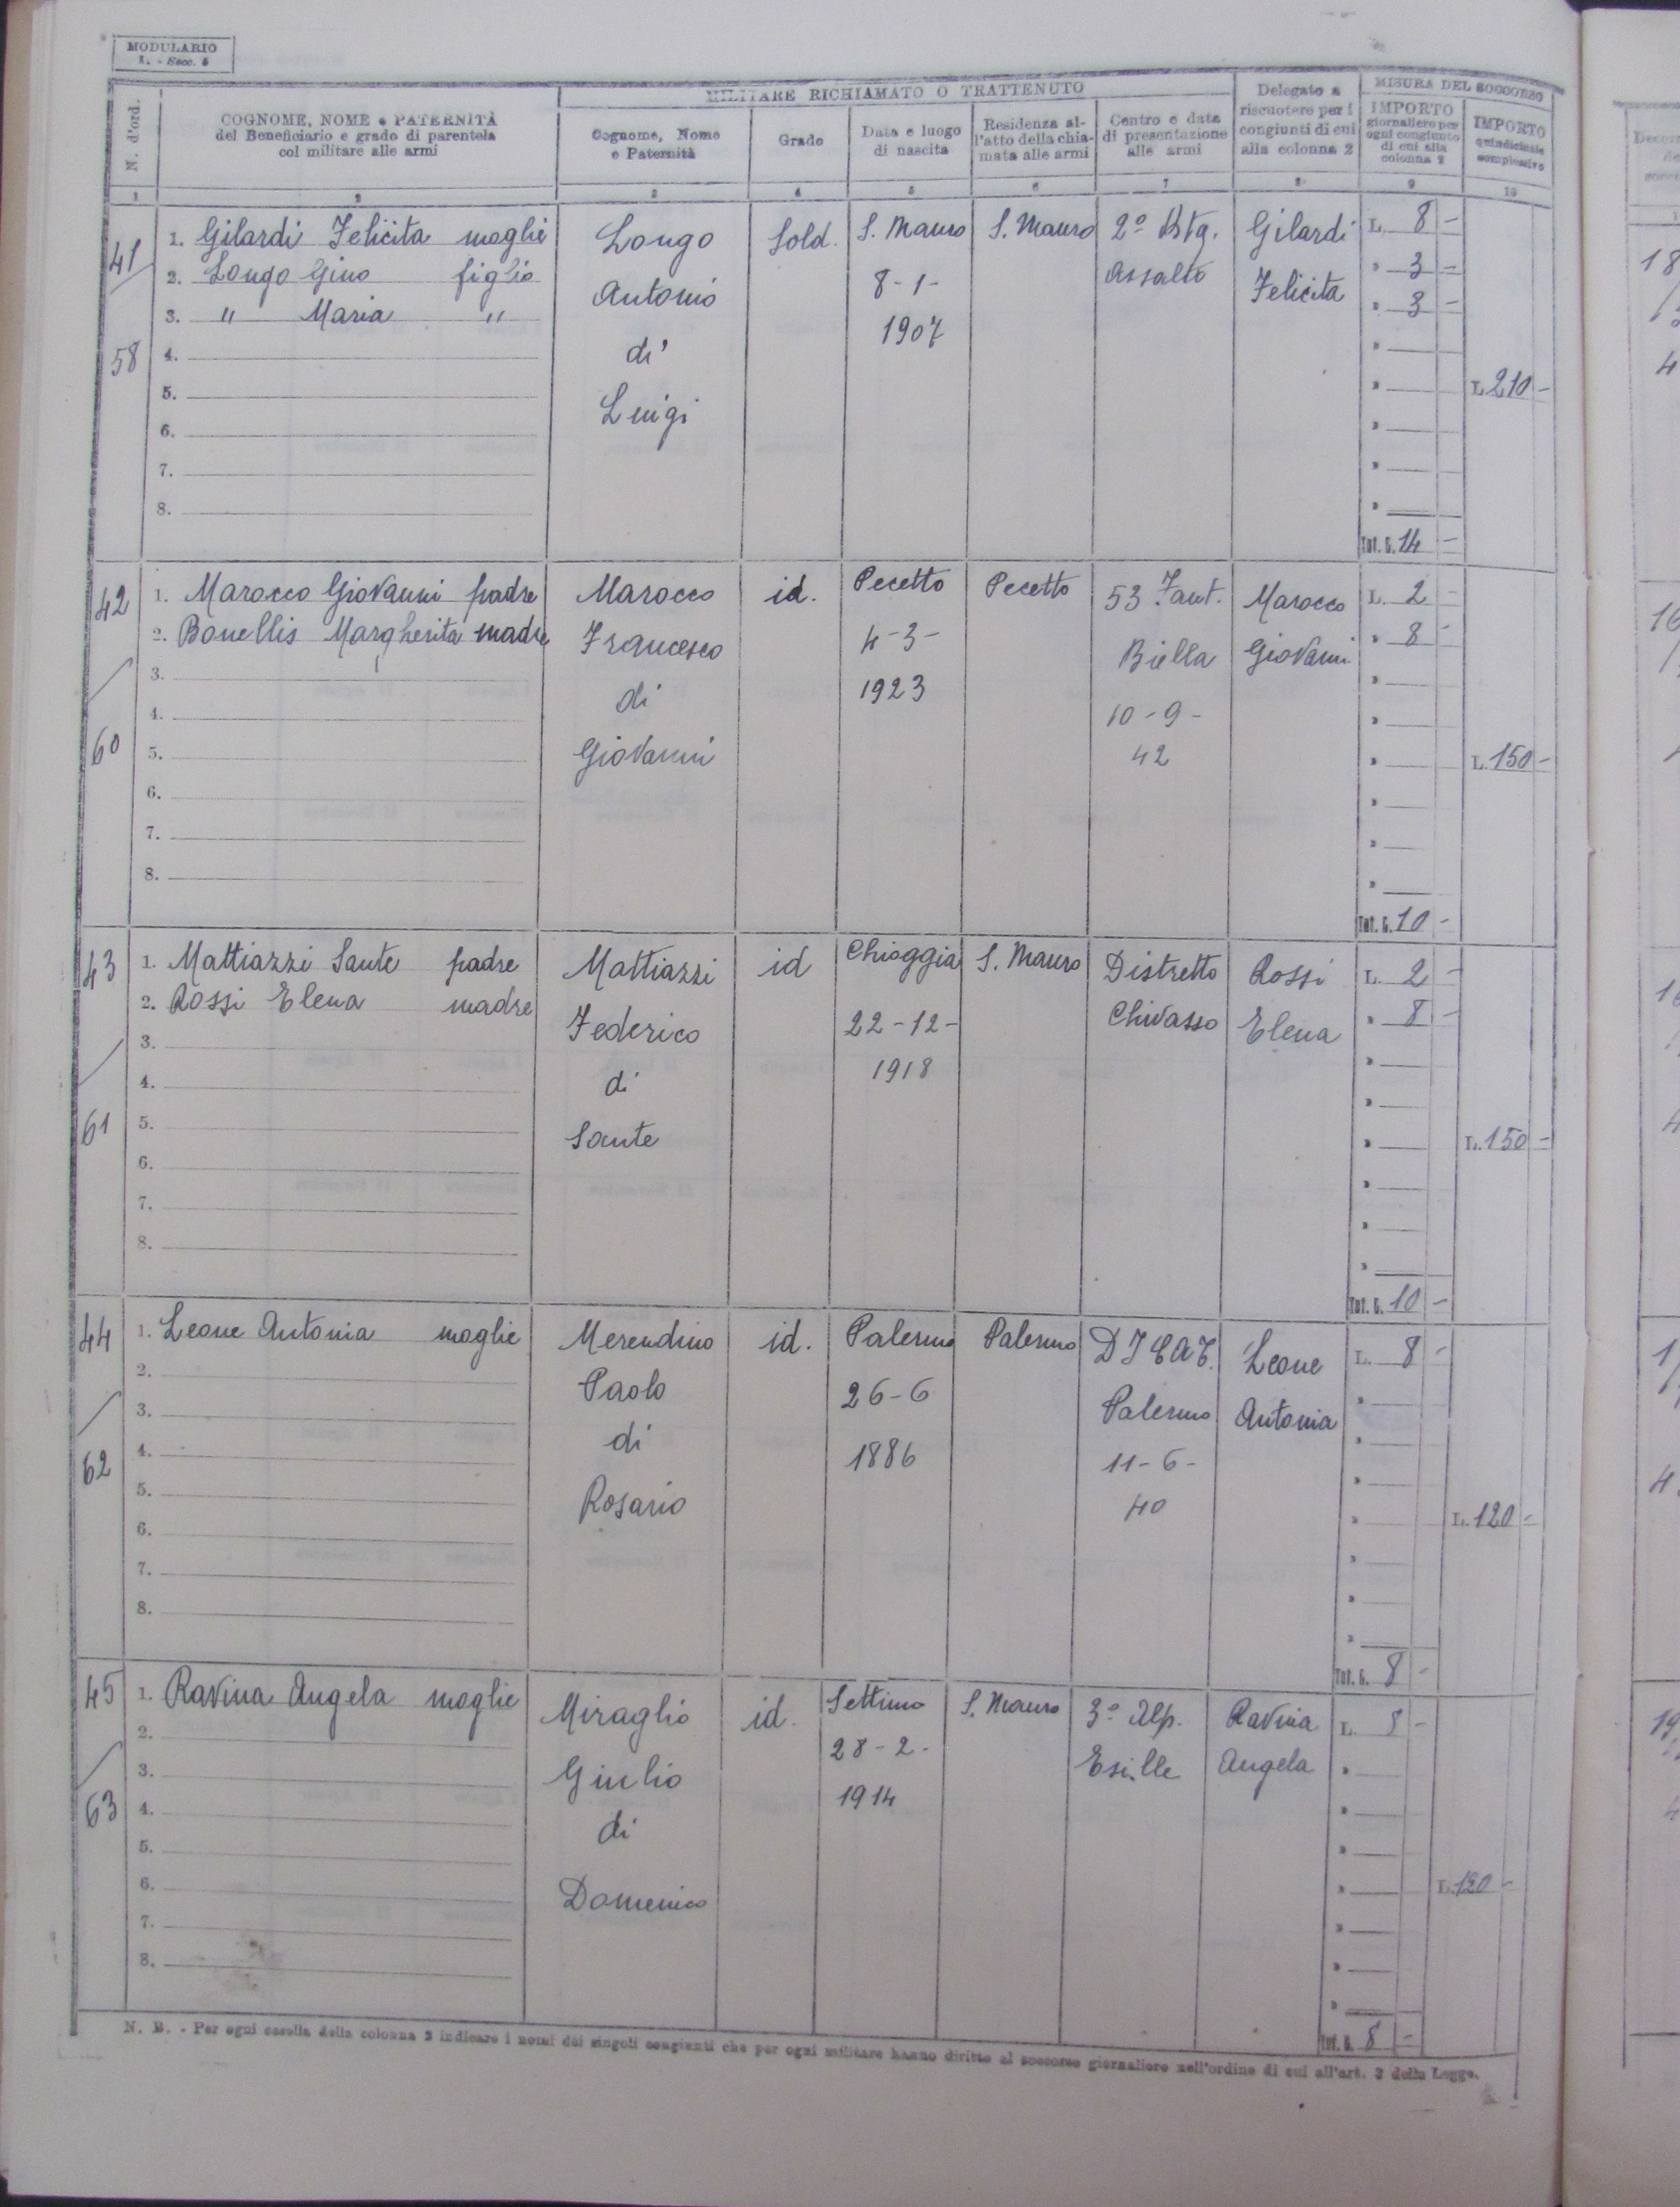 MODULARIO
I. - Secc. 5
N. d'ord.
COGNOME, NOME e PATERNITÀ
del Beneficiario e grado di parentela
col militare alle armi
MILITARE RICHIAMATO O TRATTENUTO
Cognome, Nome
e Paternità
Grado
Data e luogo
di nascita
Residenza al-
l'atto della chia-
mata alle armi
Centro e data
di presentazione
alle armi
Delegato a
riscuotere per i
congiunti di cui
alla colonna 2
MISURA DEL SOCCORSO
IMPORTO
giornaliero per
ogni congiunto
di cui alla
colonna 2
IMPORTO
quindicinale
complessivo
1 2 3 4 5 6 7 8 9 10
41
58
1. Gilardi Felicita moglie
2. Longo Gino figlio
3. " Maria "
4.
5.
6.
7.
8.
Longo
Antonio
di
Luigi
Sold.
S. Mauro
8-1-
1907
S. Mauro
2º Btg.
Assalto
Gilardi
Felicita
L. 8 -
" 3 -
" 3 -
Tot. G. 14 -
L. 210 -
42
60
1. Marocco Giovanni padre
2. Bonellis Margherita madre
3.
4.
5.
6.
7.
8.
Marocco
Francesco
di
Giovanni
id.
Pecetto
4-3-
1923
Pecetto
53 Fant.
Biella
10-9-
42
Marocco
Giovanni
L. 2 -
" 8 -
Tot. G. 10 -
L. 150 -
43
61
1. Mattiazzi Sante padre
2. Rossi Elena madre
3.
4.
5.
6.
7.
8.
Mattiazzi
Federico
di
Sante
id
Chioggia
22-12-
1918
S. Mauro
Distretto
Chivasso
Rossi
Elena
L. 2 -
" 8 -
Tot. G. 10 -
L. 150 -
44
62
1. Leone Antonia moglie
2.
3.
4.
5.
6.
7.
8.
Merendino
Paolo
di
Rosario
id.
Palermo
26-6
1886
Palermo
Palermo
11-6-
40
Leone
Antonia
L. 8 -
Tot. G. 8 -
L. 120 -
45
63
1. Ravina Angela moglie
2.
3.
4.
5.
6.
7.
8.
Miraglio
Giulio
di
Domenico
id.
Settimo
28-2-
1914
S. Mauro
3º Alp.
Esille
Ravina
Angela
L. 8 -
Tot. G. 8 -
L. 120 -
N. B. - Per ogni casella della colonna 2 indicare i nomi dei singoli congiunti che per ogni militare hanno diritto al soccorso giornaliero nell'ordine di cui all'art. 3 della Legge.